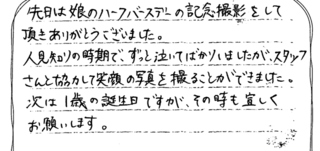 先日は娘のハーフバースデーの記念撮影をして
頂きありがとうございました。
人見知りの時期で、ずっと泣いてばかりいましたが、スタッフ
さんと協力して笑顔の写真を撮ることができました。
次は1歳の誕生日ですが、その時も宜しく
お願いします。